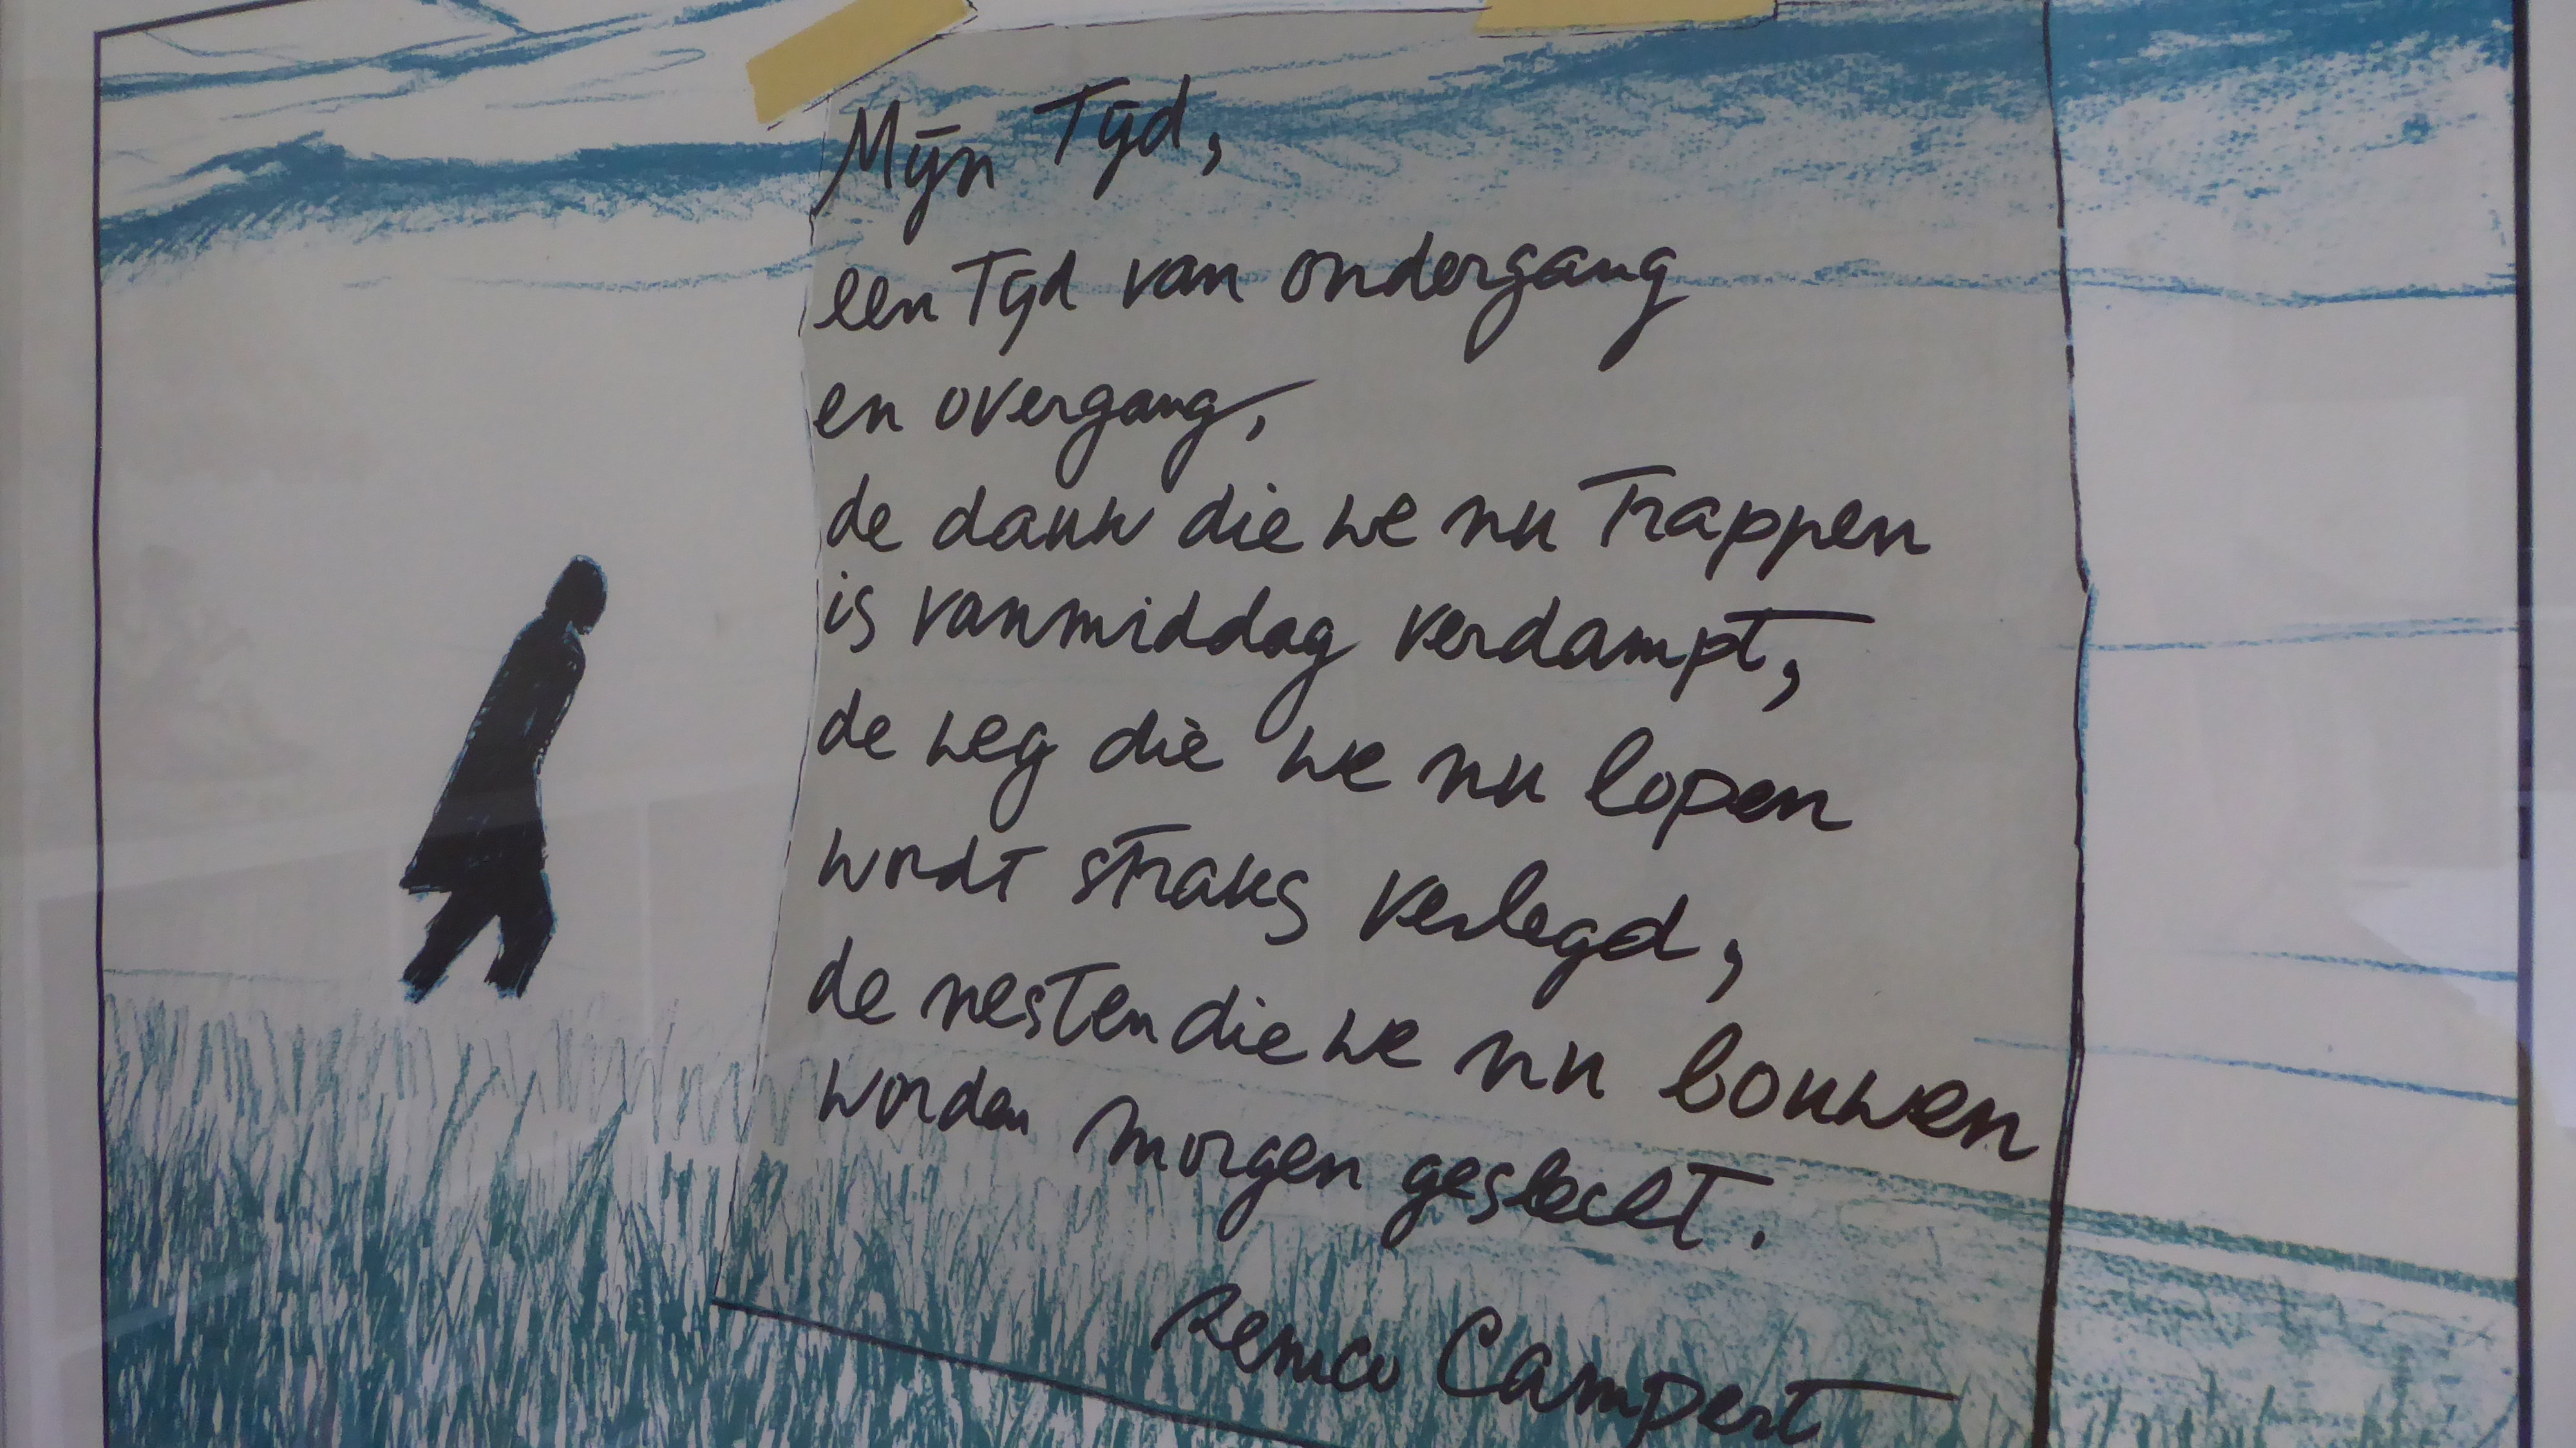 Mijn Tijd,
een Tijd van ondergang
en overgang,
de dauw die we nu Trappen
is vanmiddag verdampt,
de weg die we nu lopen
wordt straks verlegd,
de nesten die we nu bouwen
worden morgen geslecht.
Remco Campert